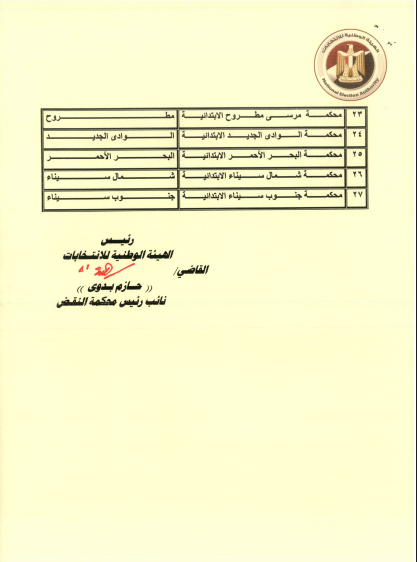 الهيئة الوطنية للانتخابات
National Election Authority
٢٣ محكمـــــة مرسى مطــروح الابتدائيـــة مطـــــــــــروح
٢٤ محكمـــة الـــوادى الجديـــد الابتدائيـــة الـــوادى الجديـــــد
٢٥ محكمـــة البحـــر الأحمـــر الابتدائيـــة البحـــر الأحمـــر
٢٦ محكمـــة شمـــال ســـــيناء الابتدائيـــة شـــمال ســـــيناء
٢٧ محكمـــة جنـــوب سيناء الابتدائيـــة جنـــوب ســـــيناء
رئيـــس
الهيئة الوطنية للانتخابات
القاضي/
(( حـــازم بـدوى ))
نائب رئيس محكمة النقض